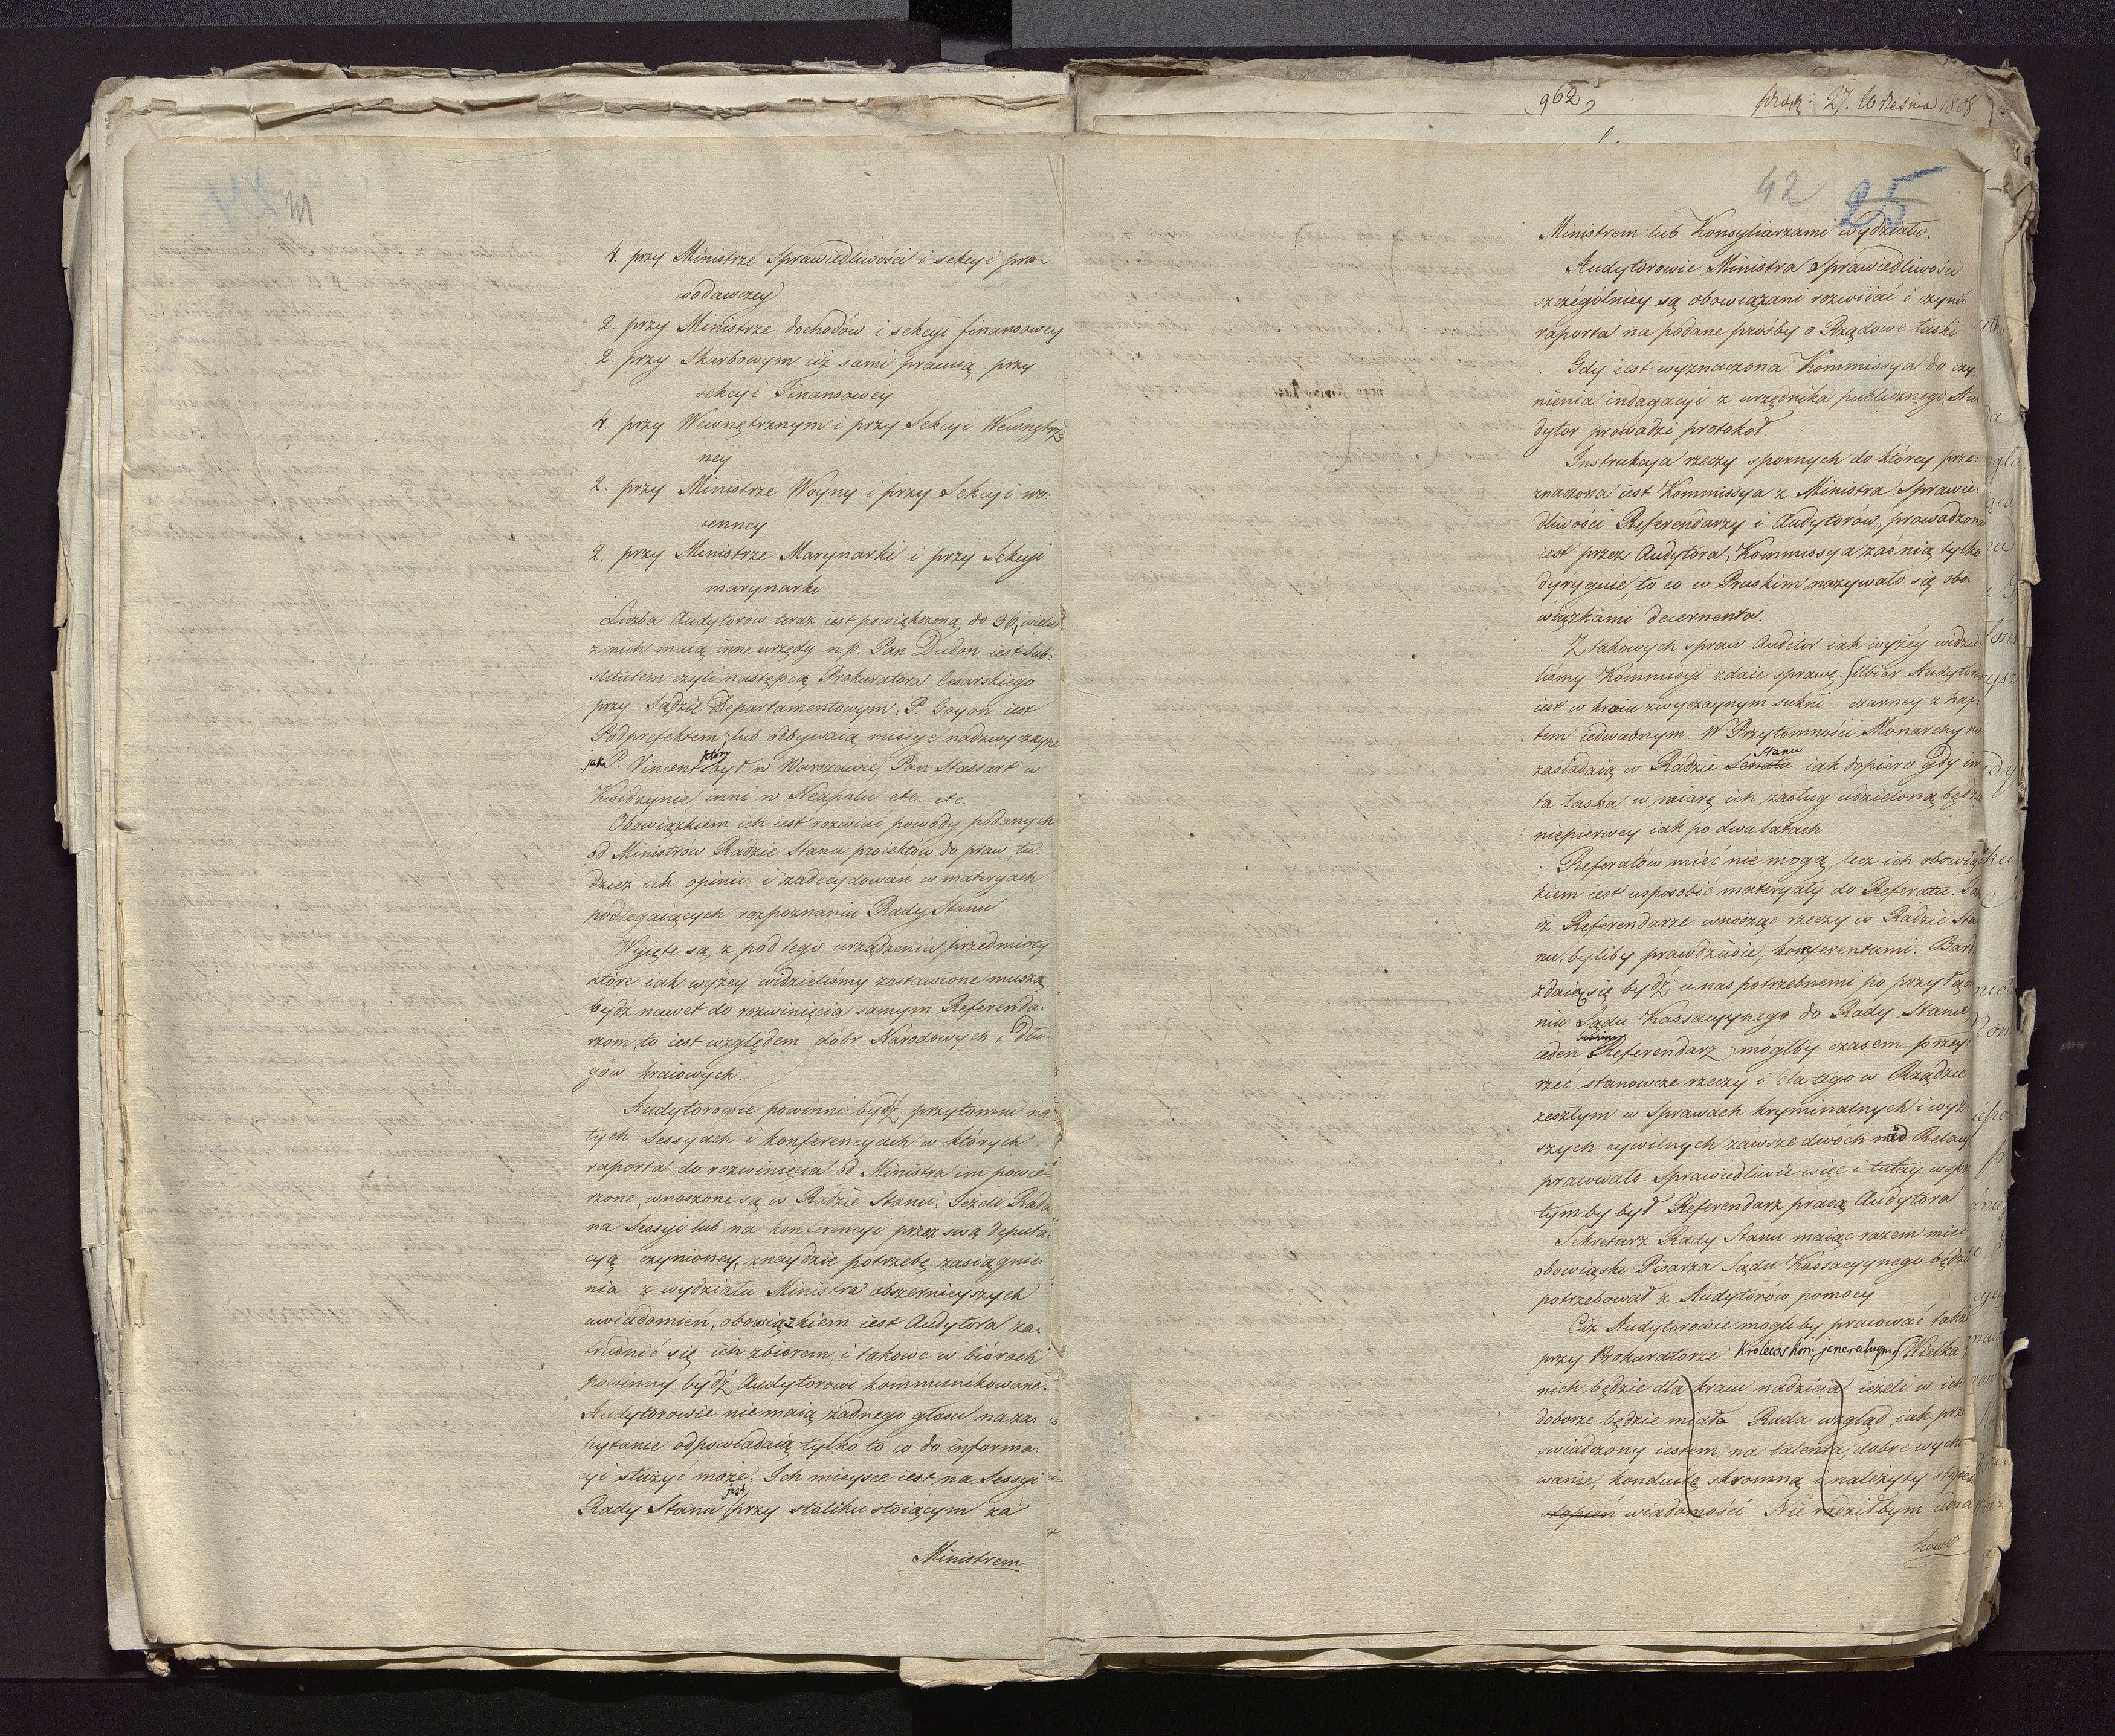 4. przy Ministrze Sprawiedliwości i sekcyi pra-
wodawczey
2. przy Ministrze dochodów i sekcyi finansowey
2. przy Skarbowym ciż sami pracuią przy
sekcyi Finansowey
4. przy Wewnętrznym i przy Sekcyi Wewnętrz-
ney
2. przy Ministrze Woyny i przy Sekcyi wo:
ienney
2. przy Ministrze Marynarki i przy Sekcyi
marynarki
Liczba Audytorów teraz iest powiększoną do 36, wielu
z nich maią inne urzędy n.p. Pan Dudon iest Sub-
stitutem czyli następcą Prokuratora Cesarskiego
przy Sądzie Departamentowym, P. Gayon iest
Podprefektem, lub odbywaią missye nadzwyczayne
jako P. Vincent który był w Warszawie, Pan Stassart w
Kwidzynie, inni w Neapolu etc. etc.
Obowiązkiem ich iest rozwiiać powody podanych
od Ministrów Radzie Stanu proiektów do praw, tu-
dzież ich opinii i zadecydowań w materyach
podlegaiących rozpoznaniu Rady Stanu
Wyięte są z pod tego urządzenia przedmioty
które iak wyżey widzieliśmy zostawione muszą
bydź nawet do rozwinięcia samym Referenda-
rzom, to iest względem dóbr Narodowych i Dłu-
gów kraiowych.
Audytorowie powinni bydź przytomni na
tych Sessyach i konferencyach w których
raporta do rozwinięcia od Ministra im powie-
rzone, wnoszone są w Radzie Stanu. Jeżeli Rada
na Sessyi lub na konferencyi przez swą deputa-
cyą czynioney, znaydzie potrzebę zasiągnie-
nia z wydziału Ministra obszernieyszych
uwiadomień, obowiązkiem iest Audytora za-
trudnić się ich zbiorem, i takowe w biórach
powinny bydź Audytorowi kommunikowane.
Audytorowie nie maią żadnego głosu, na za-
pytanie odpowiadaią tylko to co do informa-
cyi służyć może. Ich mieysce iest na Sessyi
Rady Stanu jest przy stoliku stoiącym za
Ministrem
962,
27. Września 1808
42 25
Ministrem lub Konsyliarzami wydziału.
Audytorowie Ministra Sprawiedliwości
szczególniey są obowiązani rozwiiać i czynić
raporta na podane prośby o Rządowe łaski
Gdy iest wyznaczona Kommissya do czy-
nienia indagacyi z urzędnika publicznego, Au-
dytor prowadzi protokół.
Instrukcya rzeczy spornych do którey prze-
znaczona iest Kommissya z Ministra Sprawie-
dliwości Referendarzy i Audytorów, prowadzona
iest przez Audytora, Kommissya zaś nią tylko
dyryguie, to co w Pruskim nazywało się obo-
wiązkami decernenta.
Z takowych spraw Auditor iak wyżey widzie-
liśmy Kommissyi zdaie sprawę. (Ubiór Audytora
iest w kraiu zwyczaynym sukni czarney z haf-
tem iedwabnym. W Przytomności Monarchy nie
zasiadaią w Radzie Senatu Stanu iak dopiero gdy im
ta łaska w miarę ich zasług udzieloną będzie
niepierwey iak po dwa latach
Referatów mieć nie mogą, lecz ich obowiąz
kiem iest usposobić materyały do Referatu.
dź Referendarze wnosząc rzeczy w Radzie Sta-
nu, byliby prawdziwie, koreferentami. Bar
zdaią się bydź u nas potrzebnemi po przyłącze
niu Sądu Kassacyynego do Rady Stanu,
ieden Referendarz mógłby czasem przey-
rzeć stanowcze rzeczy i dla tego w Rządzie
zeszłym w sprawach kryminalnych i wyż-
szych cywilnych zawsze dwóch nad Relacyą
pracowało. Sprawiedliwie więc i tutay wspar-
tym by był Referendarz pracą Audytora
Sekretarz Rady Stanu maiąc razem mieć
obowiązki Pisarza Sądu Kassacyynego będzie
potrzebował z Audytorów pomocy
Ciż Audytorowie mogliby pracować także
przy Prokuratorze Królewskim jeneralnym. (Wielka z
nich będzie dla kraiu nadzieia ieżeli w ich
doborze będzie miała Rada wzgląd, iak prze
świadczony iestem, na talenta, dobre wycho-
wanie, konduitę skromną i należyty stopień
stopień wiadomości. Nie radziłbym iedna